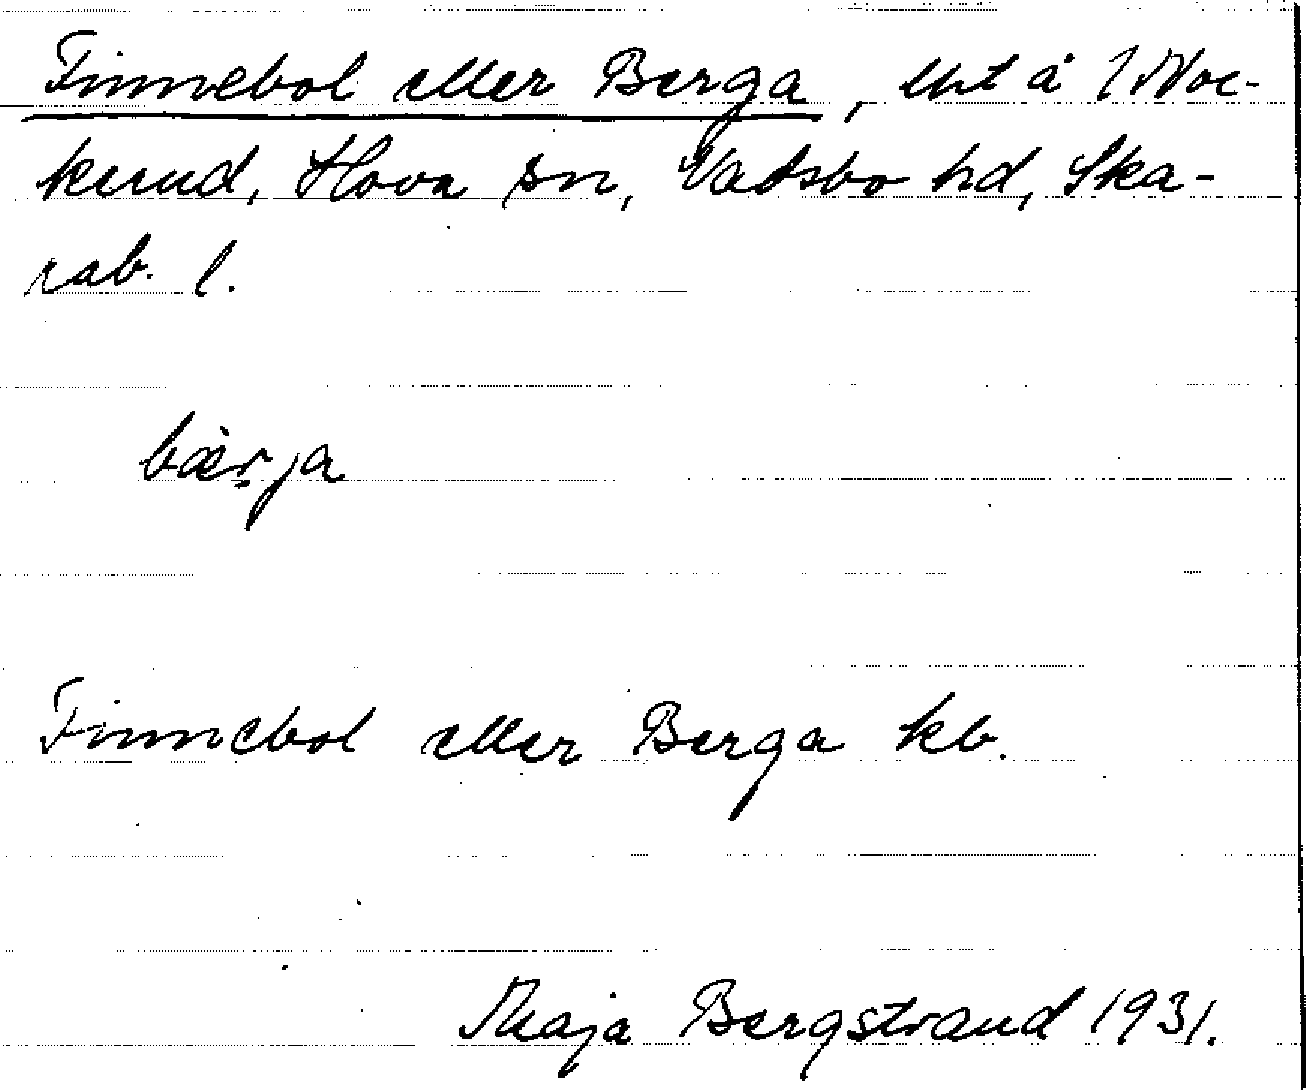 Finnebol eller Berga, lht å 1 Noc-
kerud, Hova sn, Vadsbo hd, Ska-
rab. l.
bær̤ja
Finnebol eller Berga kb.
Maja Bergstrand 1931.